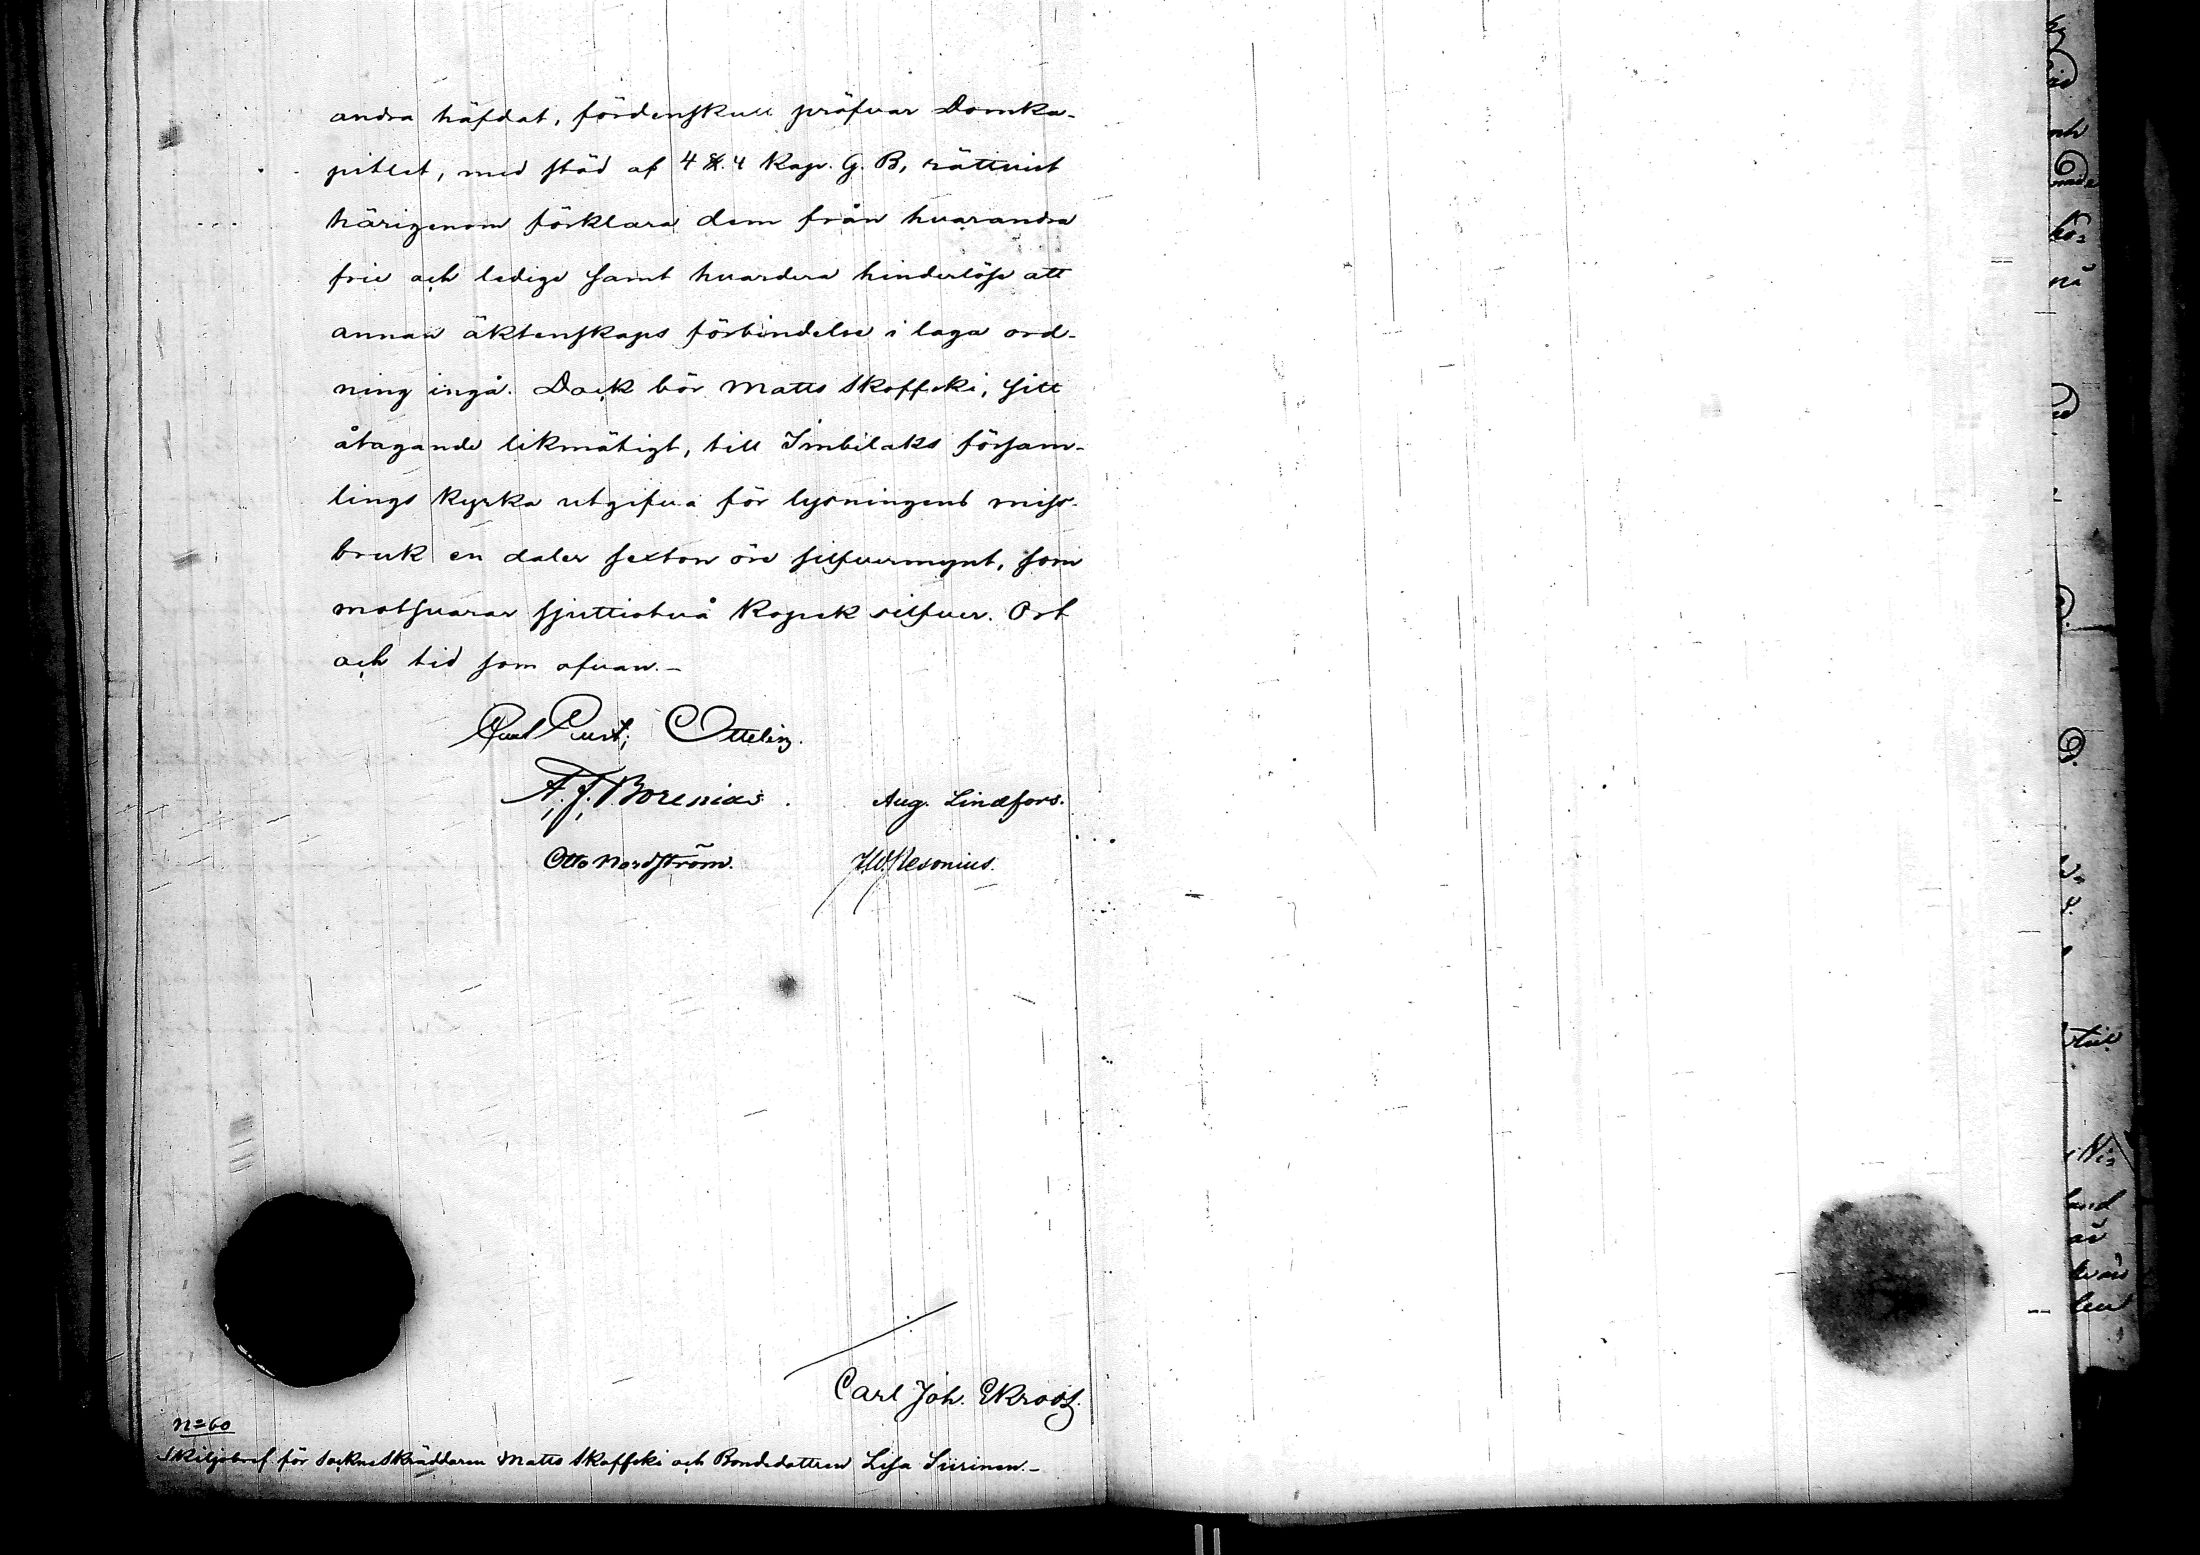 andra häfdat, fördenskull pröfvar Domka-
pitlet, med stöd af 4 §. 4 Kap. G. B, rättvist
härigenom förklara dem från hvarandra
frie och ledige samt hvardera hinderlöse att
annan äktenskaps förbindelse i laga ord-
ning ingå. Dock bör Matts Skoffski, sitt
åtagande likmätigt, till Imbilaks försam-
lings Kyrka utgifva för lysningens miss-
bruk en daler sexton öre silfvermynt, som
motsvarar sjuttiotvå Kopek silfver. Ort
och tid som ofvan.-
Carl Gust. Ottelin.
A. J. Borenius.
Aug. Lindfors.
Otto Nordström.
Carl Joh. Ekroos.
No 60
Skiljobref för SockneSkräddaren Matts Skoffski och Bondedottren Lisa Siirinen.-